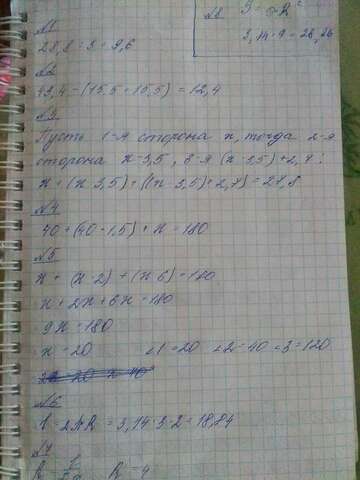 №1
28,8 : 3 = 9,6
№2
43,4 - (15,5 + 15,5) = 12,4
№3
Пусть 1-я сторона x, тогда 2-я
сторона x-3,5, 3-я (x-3,5)+2,7:
x + (x-3,5) + ((x-3,5)+2,7) = 27,8
№4
40 + (40·1,5) + x = 180
№5
x + (x·2) + (x·6) = 180
x + 2x + 6x = 180
9x = 180
x = 20 ∠1 = 20 ∠2 = 40 ∠3 = 120
№6
l = 2πR = 3,14·3·2 = 18,84
№7
R = 4
№8
3,14·9 = 28,26